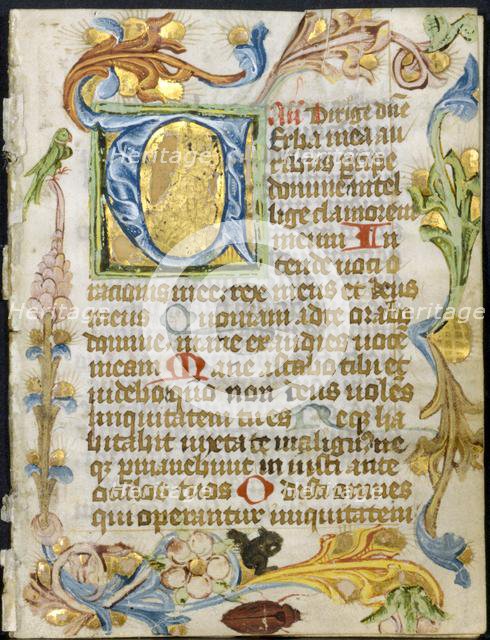 Añ Dirige dñe
Verba mea au
ribus p̄cipe
domine intel
lige clamorem
meum In
tende voci o
rationis mee rex meus et deus
meus Quoniam ad te orabo
domine mane exaudies vocē
meam Mane astabo tibi et
videbo quo non deus voles
iniquitatem tu es Neq̄ ha
bitabit iuxta te malignꝰ ne
qꝫ permanebunt iniusti ante
oculos tuos Odisti omnes
qui operantur iniquitatem
Heritage
Heritage
Heritage
Heritage